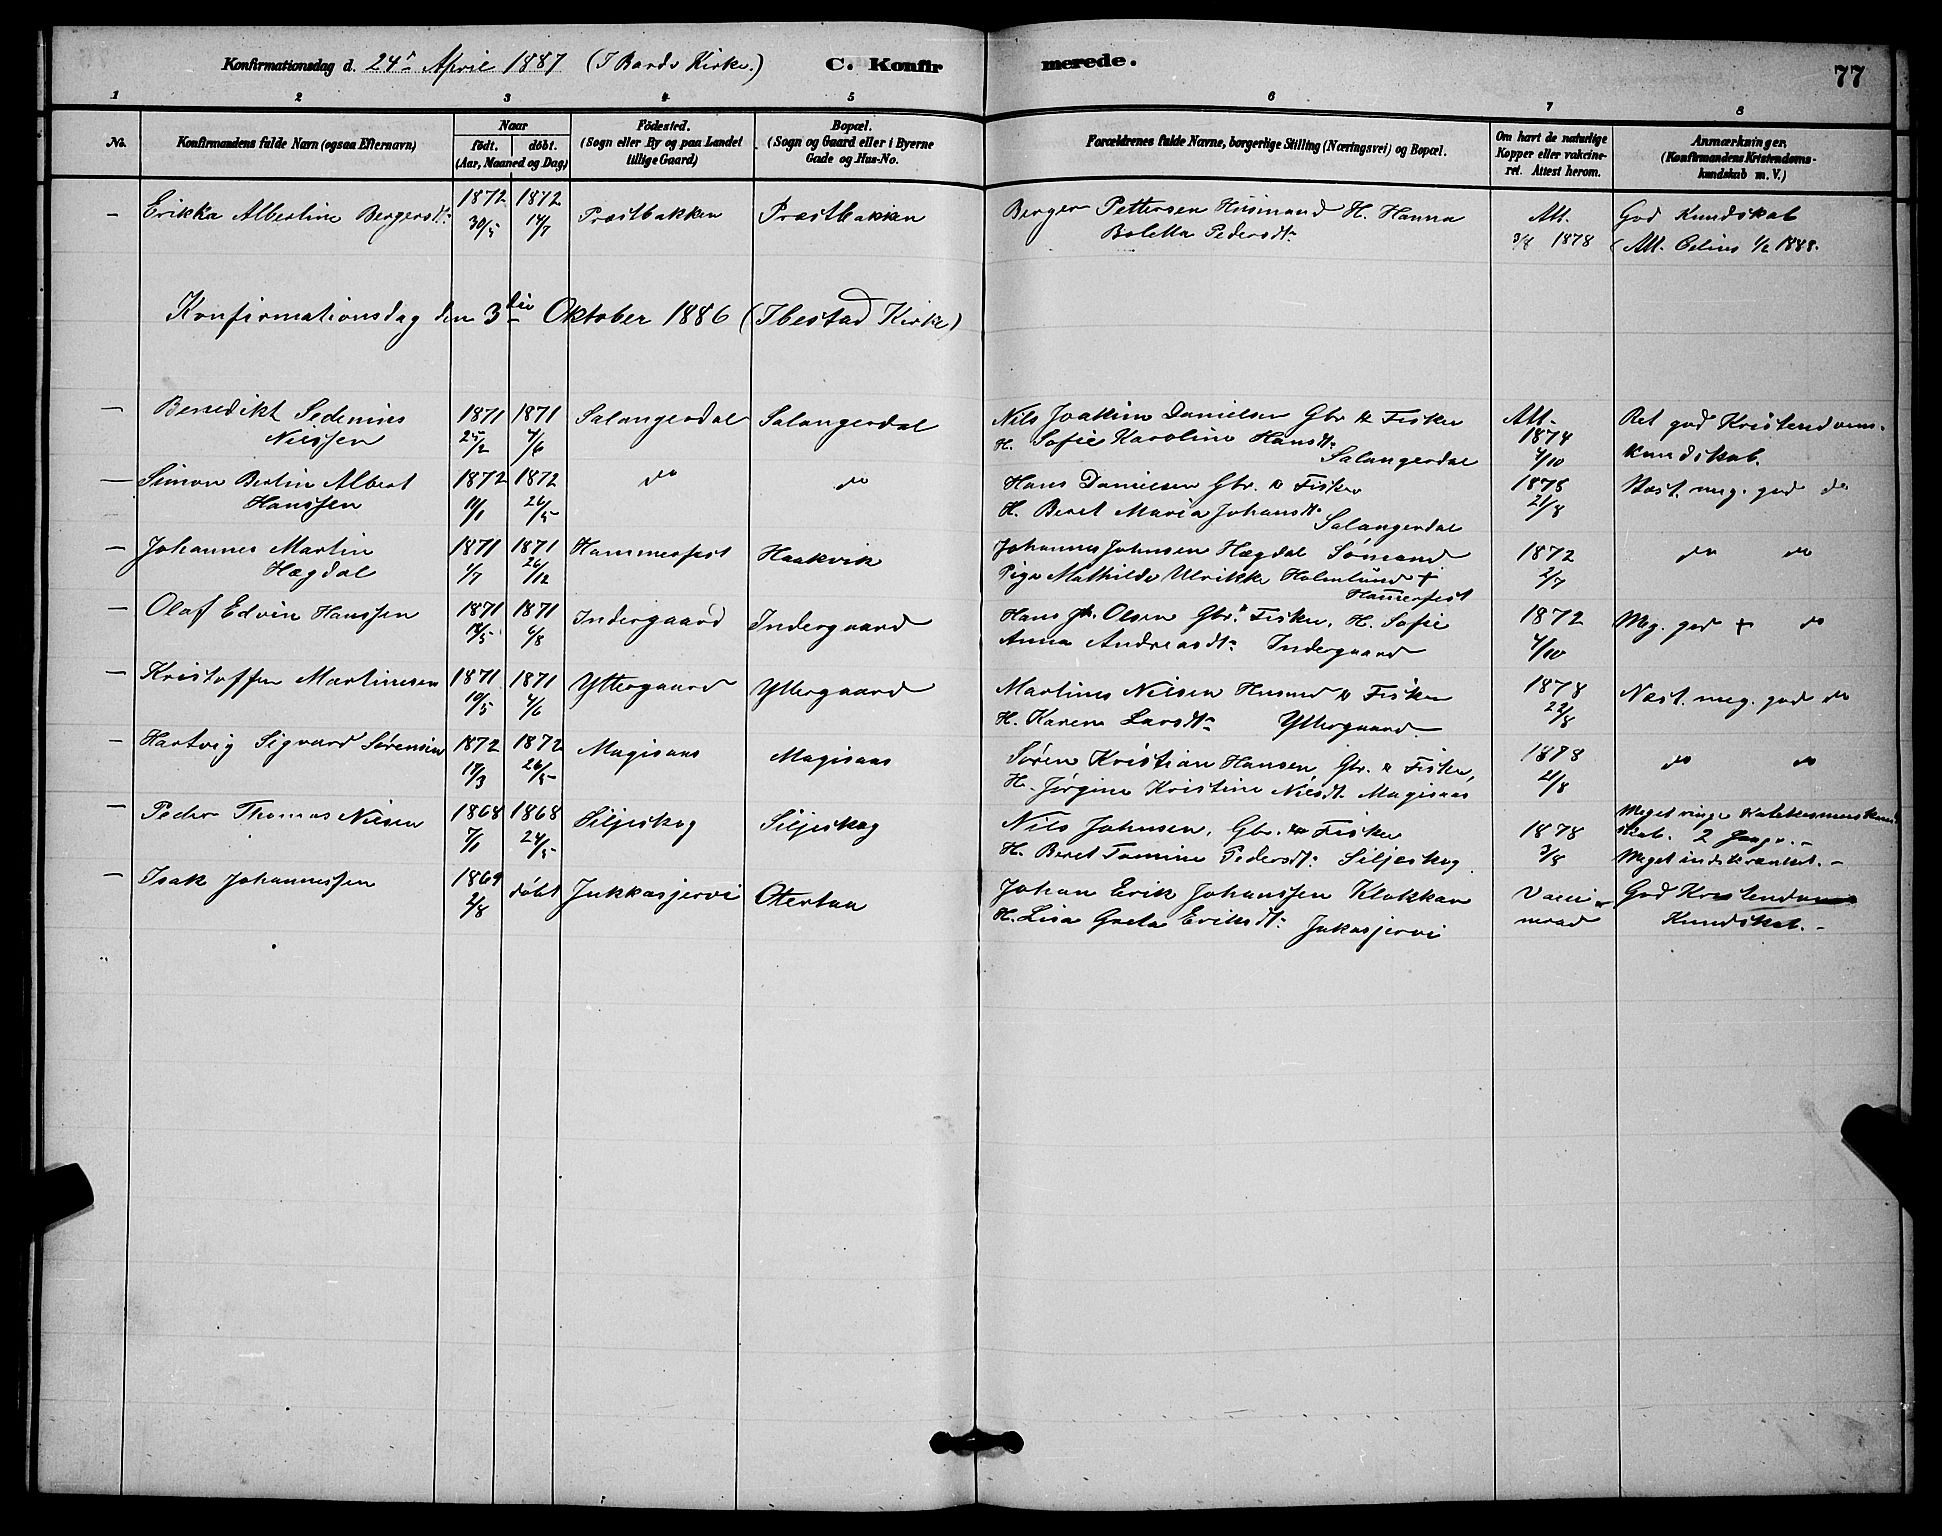 Konfirmationsdag d. 24de April 1887 (I Bardo Kirke.) C. Konfirmerede. 77
1 2 3 4 5 6 7 8
No. Konfirmandens fulde Navn (ogsaa Efternavn) Naar födt. döbt. (Aar, Maaned og Dag) Födested. (Sogn eller By og paa Landet tillige Gaard) Bopæl. (Sogn og Gaard eller i Byerne Gade og Hus-No. Forældrenes fulde Navne, borgerlige Stilling (Næringsvei) og Bopæl. Om havt de naturlige Kopper eller vakcineret. Attest herom. Anmærkninger. (Konfirmandens Kristendomskundskab m. V.)
– Erikka Albertine Bergersdt: 1872 30/5 1872 14/7 Præstbakken Præstbakken Berger Pettersen Husmand H. Hanna Att. God Kundskab
Boletta Pedersdt: 3/8 1878 (Att. Celius 1/2 1888.
Konfirmationsdag den 3die Oktober 1886 (Ibestad Kirke)
– Benedikt Sedenius 1871 1871 Salangerdal Salangerdal Nils Joakim Danielsen Gbr & Fisker Att. 1874 Ret god Kristendoms-
Nilssen 25/2 4/6 H. Sofie Karoline Hansdt: Salangerdal 4/10 kundskab.
– Simon Bertin Albert 1872 1872 do do Hans Danielsen Gbr. & Fisker 1878 Næst. meg. god do
Hanssen 11/1 26/5 H. Beret Maria Johansdt: Salangerdal 21/8
– Johannes Martin 1871 1871 Hammerfest Haakvik Johannes Johnsen Hægdal Sømand 1872 do do
Hægdal 1/7 26/12 Pige Mathilde Ulrikke Holmlund + Hamerfest 2/7
– Olaf Edvin Hanssen 1871 1871 Indergaard Indergaard Hans Olsen Gbr. & Fisker, H. Sofie 1872 Meg. god + do
6/8 Anna Andreasdt: Indergaard 4/10
– Kristoffer Martinesen 1871 1871 Yttergaard Yttergaard Martines Nilsen Husmd & Fisker 1878 Næst. meg. god do
10/5 4/6 H. Karen Larsdt: Yttergaard. 22/8
– Hartvig Sigvard Sørensen 1872 1872 Magisaas Magisaas Søren Kristian Hansen, Gbr. & Fisker, 1878 do do
17/3 26/5 H. Jørgine Kristine Nilsdt. Magisaas 21/8
– Peder Thomas Nilsen 1868 1868 Siljeskog Siljeskog Nils Johnsen, Gbr. & Fisker 1878 Meget ringe
7/1 24/5 H. Beret Tomine Pedersdt: Siljeskog 3/8 2 Gange. – Meget indskrænket. –
– Isak Johannessen 1869 døbt Jukkasjervi Oteraa Johan Erik Johanssen Klokkar Vacci- God Kristendoms
2/8 H. Lisa Greta Eriksdt: Jukasjervi nerad Kundskab. –